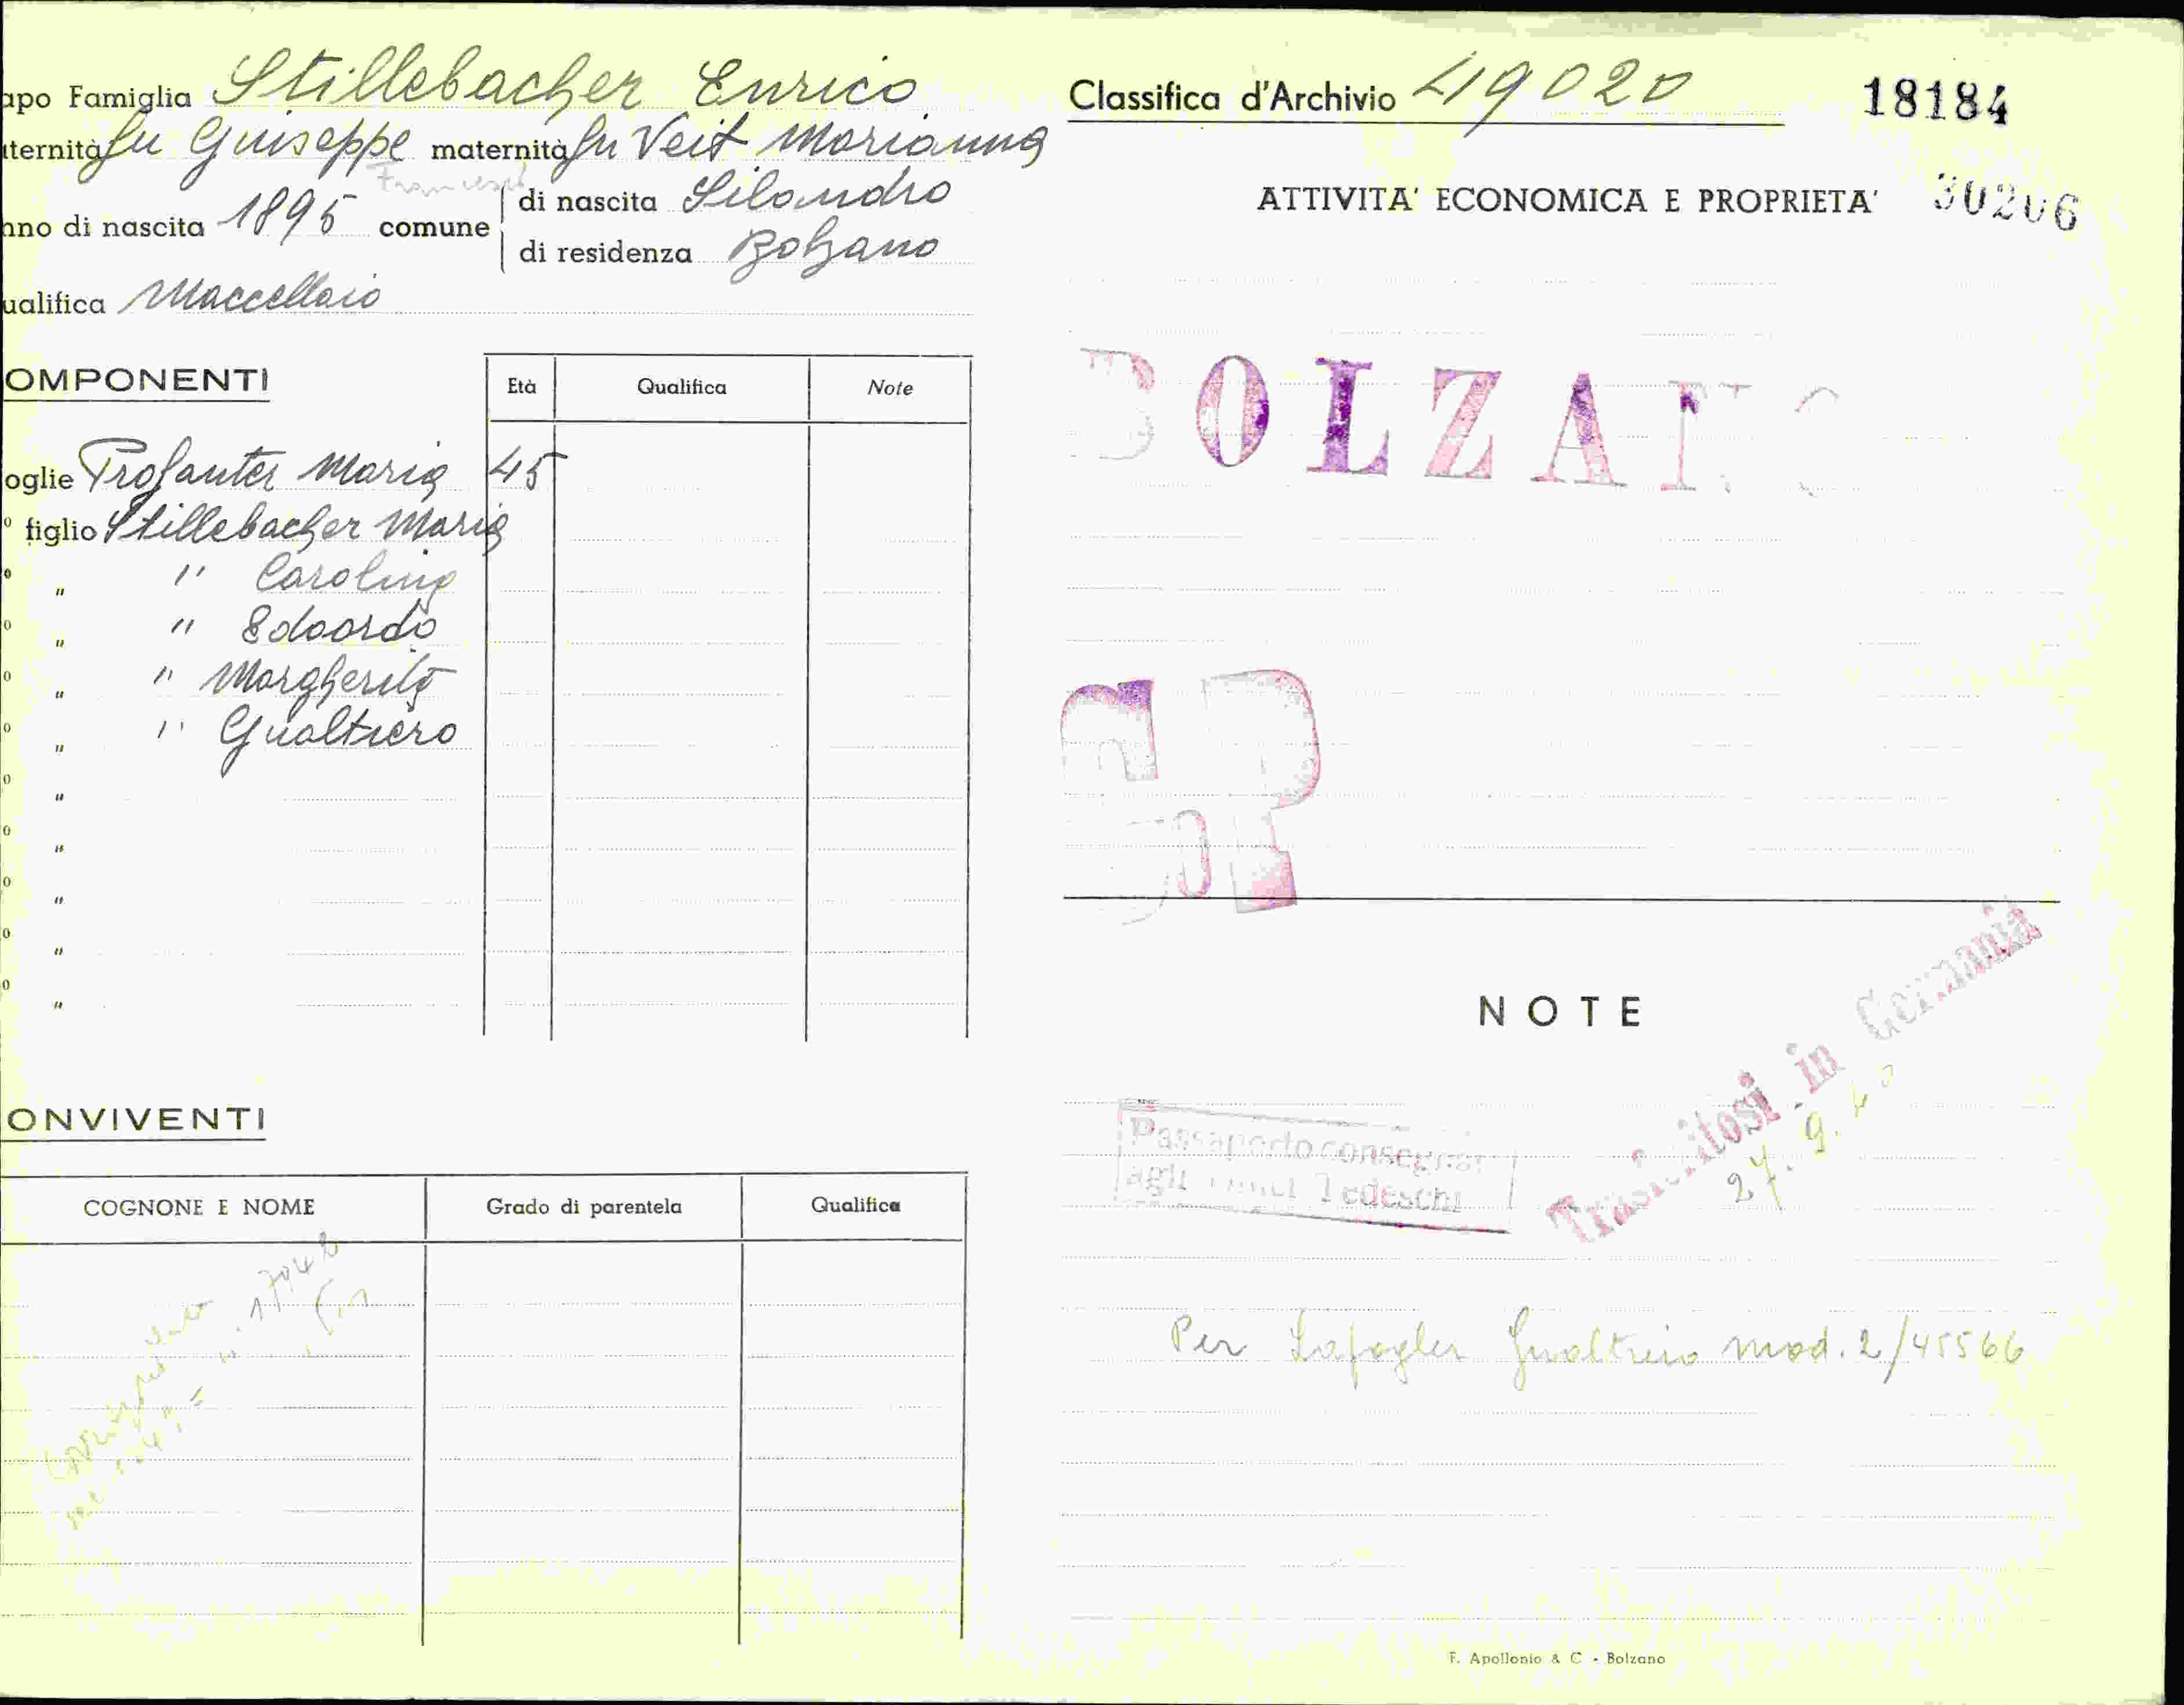 apo Famiglia Stillebacher Enrico
ternità fu Guiseppe maternità fu Veit Marianna
Francesco
nno di nascita 1895 comune di nascita Silandro
di residenza Bolzano
ualifica Maccellaio
OMPONENTI Età Qualifica Note
oglie Profanter Maria 45
º figlio Stillebacher Maria
º " " Carolina
º " " Edoardo
º " " Margherita
º " " Gualtiero
º "
º "
º "
º "
º "
ONVIVENTI
COGNONE E NOME Grado di parentela Qualifica
Classifica d'Archivio 49020 18184
ATTIVITA' ECONOMICA E PROPRIETA' 30206
BOLZANO
NOTE
Trasferitosi in Germania
27.9.40
Passaporto consegnat
agli Uffici Tedeschi
Per Lafogler Gualtiero mod. 2/45566
F. Apollonio & C - Bolzano